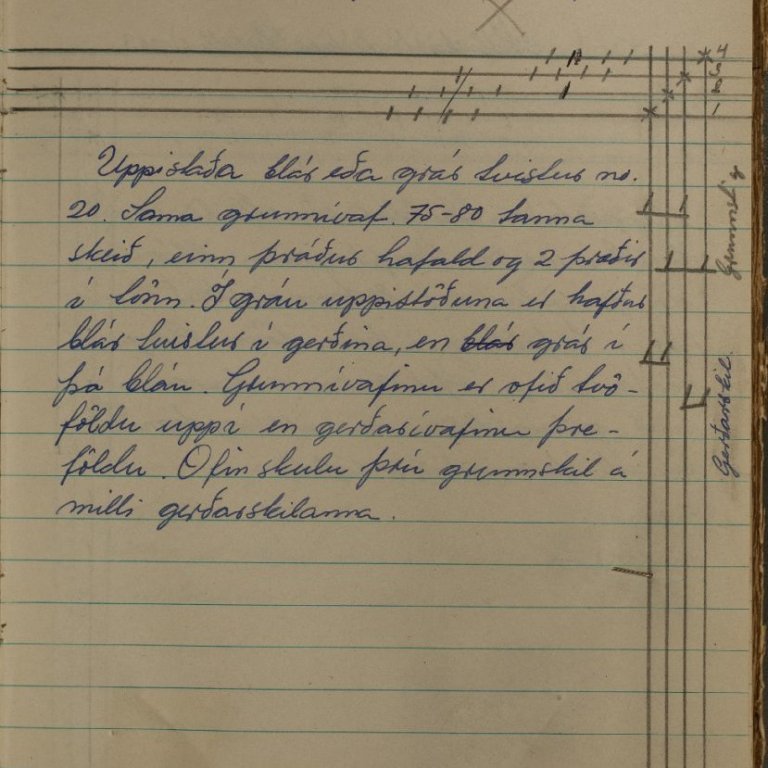 Uppistaða blár eða grár tvistur no.
20. Sama grunnívaf. 75-80 tanna
skeið, einn þráður hafald og 2 þræðir
í tönn. Í gráu uppistöðuna er hafður
blár tvistur í gerðina, en blár grár í
þá bláu. Grunnívafinu er ofið tvö-
földu uppi en gerðarívafinu þre-
földu. Ofin skulu þrjú grunnskil á
milli gerðarskilanna.
Gerðarskil.